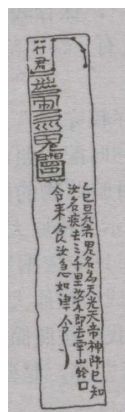 符君
乙巳日死者鬼名為天光天帝神師已知
汝名疾去三千里汝不即去南山給
令來食汝急如律令